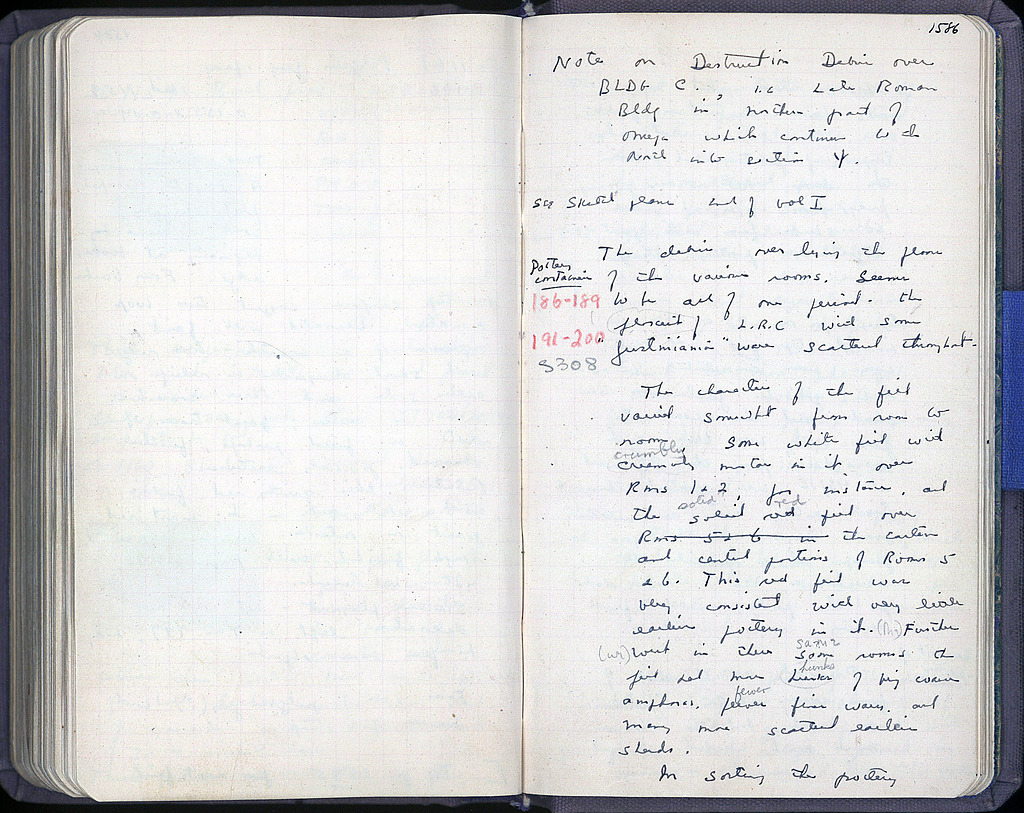 1586
Note on Destruction Debris over
BLDG C., i.e Late Roman
Bldg in northern part of
Omega which continues to the
North into section Ψ.
See Sketch plans end of vol I
The debris over lying the floors
Pottery
container
of the various rooms. Seems
186-189
to be all of one period. the
presence of L.R.C with some
191-200
"Justiniania" ware scattered throughout.
S308
The character of the fill
varied somewhat from room to
room. Some white fill with
crumbly
crumbly mortar in it over
Rms 1 & 2, for instance, and
solid red
the solid red fill over
Rms 5 & 6 in the eastern
and central portions of Rooms 5
& 6. This red fill was
very consistent with very little
earlier pottery in it. Further
west in these same rooms the
same
fill had more hunks of big coarse
hunks
amphoras, fewer finer wares, and
fewer
many more scattered earlier
sherds.
In sorting the pottery